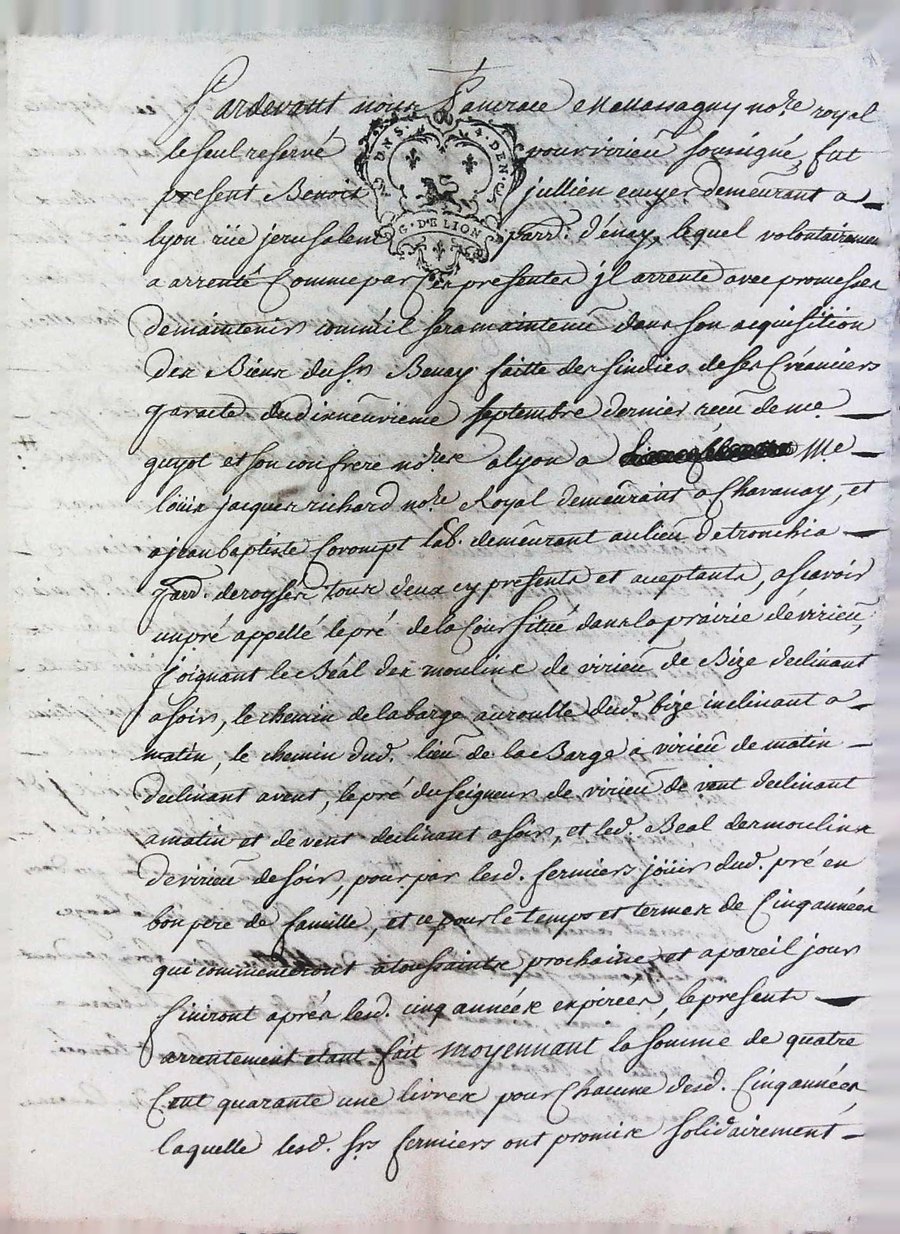 Pardevant nous Pancrace Chavassagny no.re royal
le seul reservé pour virieu soussigné, fut
present Benoit jullien ecuyer demeurant a
DNS 4.DEN.
G.DE LION
lyon rüe jerusalem parr. d'énay, lequel volontairemen
a arrenté Comme par Ces presentes jl arrente avec promesses
de maintenir comm'il sera maintenu dans son acquisition
des Biens du Sr. Benay faitte des sindics de ses Créanciers
par acte du dixneuvieme septembre dernier recu de me
guyot et son confrere no.res a lyon a Me
loüis jacques richard no.re Royal demeurant a Chavanay, et
a jean baptiste Corompt lab. demeurant au lieu de tronchia
parr. de roysey tous deux cy presents et aceptants, a scavoir
un pré appellé le pré de la Cour situé dans la prairie de virieu,
joignant le Béal des moulins de virieu de Bize declinant
a soir, le chemin de la barge a dud. bize inclinant a
matin, le chemin dud. lieu de la Barge a virieu de matin
declinant a vent, le pré du seigneur de virieu de vent declinant
a matin et de vent declinant a soir, et led. Béal des moulins
de virieu de soir, pour par lesd. fermiers joüir dud. pré en
bon pere de famille, et ce pour le temps et termes de Cinq années
qui commenceront a toussaints prochaine et a pareil jour
finiront aprés lesd. cinq années expirees, le present
arrentement etant fait moyennant la somme de quatre
Cent quarante une livres pour Chacune desd. Cinq années,
laquelle lesd. srs fermiers ont promis solidairement